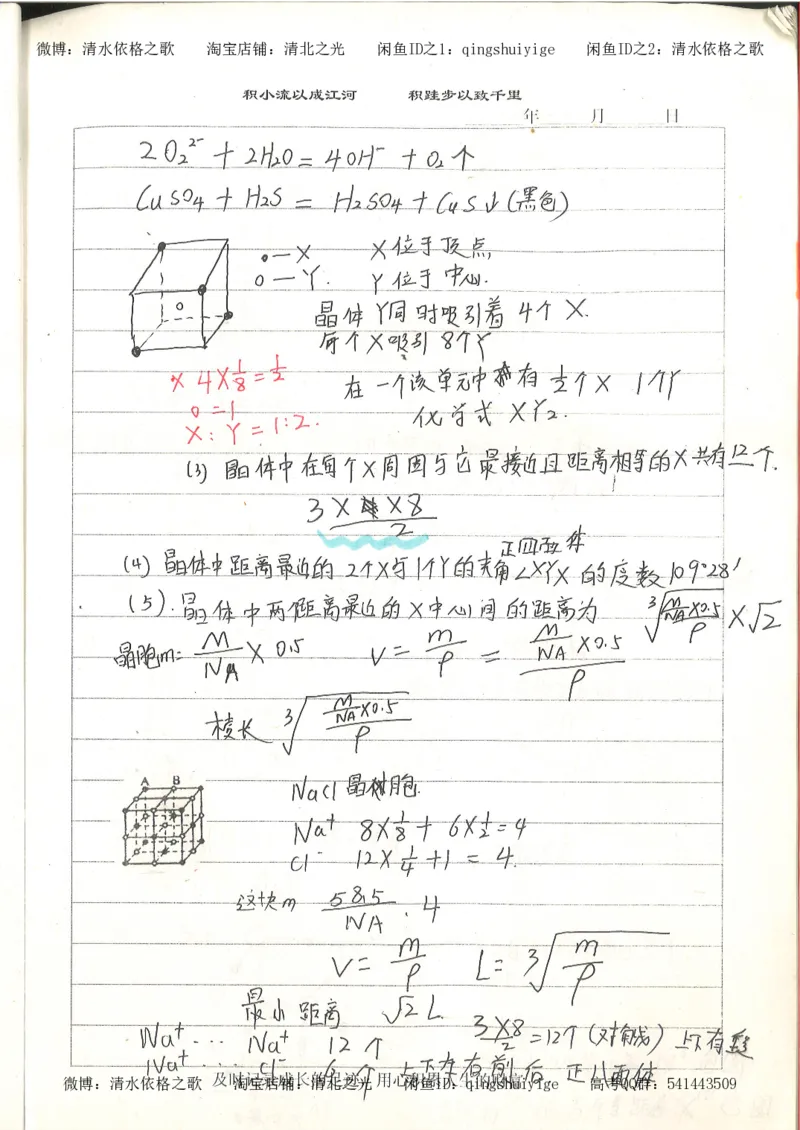 微博：清水依格之歌 淘宝店铺：清北之光 闲鱼ID之1：qingshuiyige 闲鱼ID之2：清水依格之歌
积小流以成江河 积跬步以致千里
年 月 日
2O₂²⁻ + 2H₂O = 4OH⁻ + O₂↑
CuSO₄ + H₂S = H₂SO₄ + CuS↓ (黑色)
•—X X位于顶点
o—Y. Y位于中心.
晶体Y同时吸引着4个X.
每个X吸引8个Y
X 4×1/8=1/2 在一个该单元中有1/2个X 1个Y
o=1 化学式 XY₂.
X:Y=1:2.
(3) 晶体中在每个X周围与它最接近且距离相等的X共有12个.
3×8/2
正四面体
(4) 晶体中距离最近的2个X与1个Y的夹角∠XYX的度数109°28′
(5).晶体中两个距离最近的X中心间的距离为 ∛(M/NA×0.5/ρ) ×√2
晶胞m: M/NA × 0.5 V= m/ρ = M/NA×0.5/ρ
棱长 ∛(M/NA×0.5/ρ)
A B
NaCl晶胞.
Na⁺ 8×1/8 + 6×1/2=4
Cl⁻ 12×1/4 +1 = 4.
这块m 58.5/NA · 4
V= m/ρ L= ∛(m/ρ)
最小距离 √2 L.
Na⁺ … Na⁺ 12个 3×8/2 =12个 (对角线)
Na⁺ … Cl⁻ 6个 上下左右前后 正八面体
微博：清水依格之歌 淘宝店铺：清北之光 闲鱼ID之1：qingshuiyige 高考QQ群：541443509